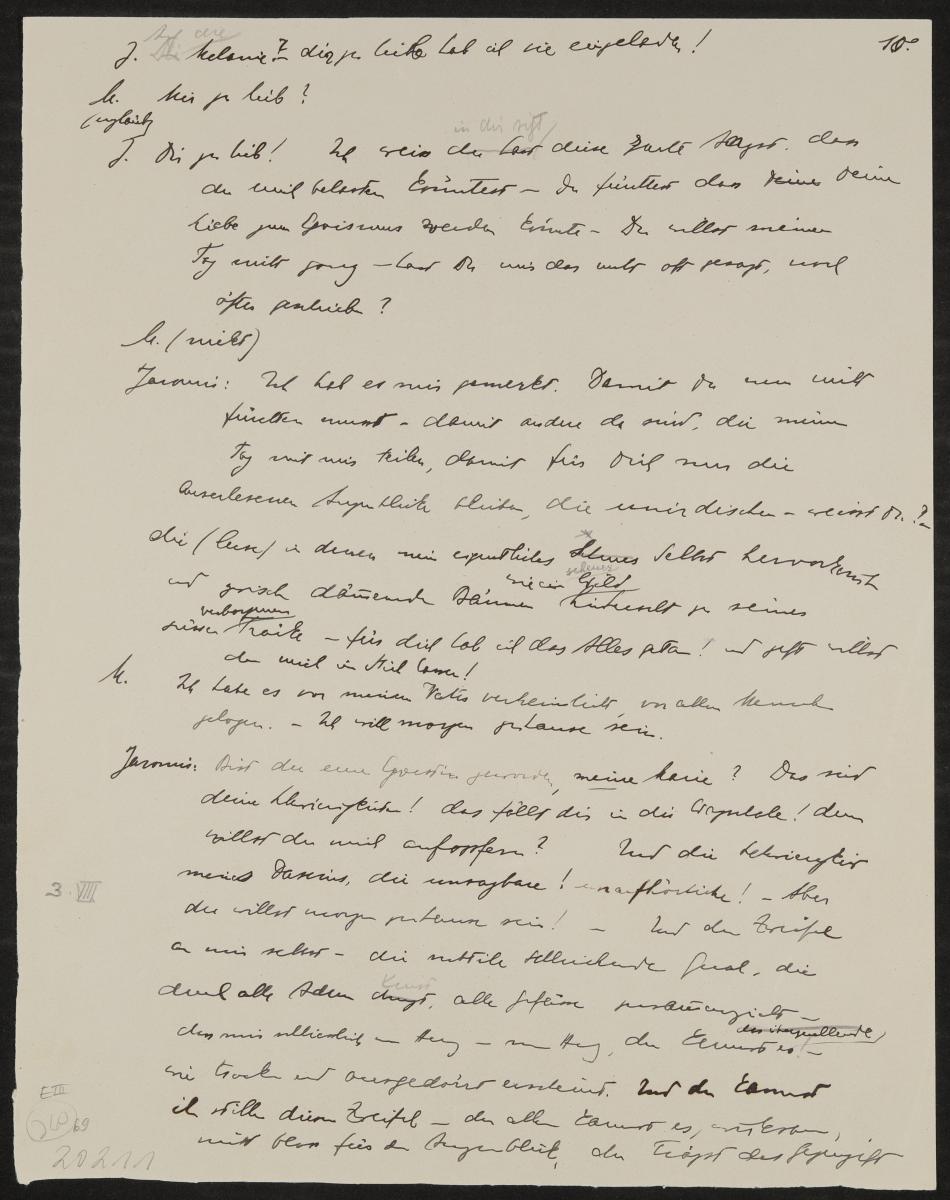 10.
J. Melanie? dir zu liebe hab ich sie eingeladen!
M. Mir zu lieb?
(ungläubig)
in dir sitzt
J. Dir zu lieb! Ich weiss du hast diese zarte Angst. dass
du mich belasten könntest – Du fürchtest dass Deine
Liebe zum Egoismus werden könnte – Du willst meinen
Tag nicht ganz – hast Du mir das nicht oft gesagt, noch
öfter geschrieben?
M. (nickt)
Jaromir: Ich hab es mir gemerkt. Damit Du nun nicht
fürchten musst – damit andere da sind, die meinen
Tag mit mir teilen, damit für Dich nur die
auserlesenen Augenblicke bleiben, die unirdischen – weisst Du?
die (leise) in denen mein eigentliches Selbst hervorkriecht
wie ein Wild
und zwischen dämmernden Bäumen hinwechselt zu seiner
verborgenen
süssen Tränke – für dich hab ich das Alles getan! und jetzt willst
du mich im Stich lassen!
M. Ich habe es vor meinem Vater verheimlicht, vor allen Menschen
gelogen. – Ich will morgen zuhause sein.
Jaromir: Bist du eine Egoistin geworden, meine Marie? Das sind
deine Schwierigkeiten! das fällt dir in die Wagschale! dem
willst du mich aufopfern? Und die Schwierigkeit
meines Daseins, die unsagbare! unaufhörliche! – Aber
du willst morgen zuhause sein! – Und der Zweifel
an mir selbst – die subtile schleichende Qual, die
durch alle Adern dringt, alle Gefässe zusammenzieht –
dass mir schliesslich mein Herz – mein Herz, du kennst es! –
wie trocken und ausgedörrt erscheint. Und du kannst
ihn stillen diesen Zweifel – du allein kannst es,
nicht bloss für den Augenblick, du trägst das Gegengift
3. VIII
E III
69
20211